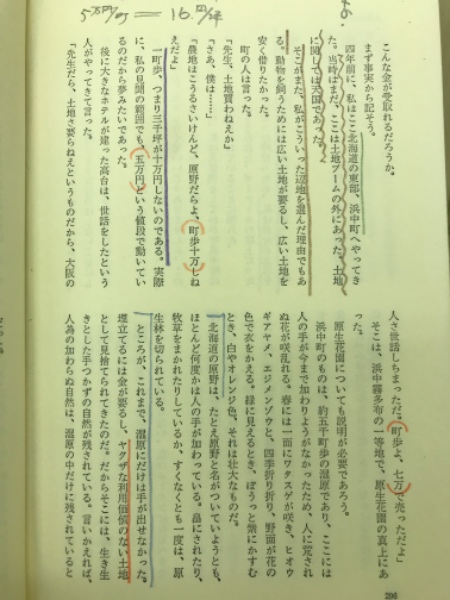 5万円/町 = 16.円/坪
こんな金が受取れるだろうか。
まず事実から記そう。
四年前に、私はここ北海道の東部、浜中町へやってき
た。当時はまだ、ここは土地ブームの外にあった。土地
に関しては天国であった。
そこがまた、私がこういった辺地を選んだ理由でもあ
る。動物を飼うためには広い土地が要るし、広い土地を
安く借りたかった。
町の人は言った。
「先生、土地買わねえか」
「さあ、僕は……」
「農地はこうるさいけんど、原野だらよ、町歩十万しね
えだよ」
一町歩、つまり三千坪が十万円しないのである。実際
に、私の見聞の範囲でも、五万円という値段で動いてい
るのだから夢みたいであった。
後に大きなホテルが建った高台は、世話をしたという
人がやってきて言った。
「先生だら、土地さ要らねえというものだから、大阪の
人さ世話しちまっただ。町歩よ、七万で売っただよ」
そこは、浜中霧多布の一等地で、原生花園の真上にあ
った。
原生花園についても説明が必要であろう。
浜中町のものは、約五千町歩の湿原であり、ここには
人の手が今まで加わりようがなかったため、人に荒され
ぬ花が咲乱れる。春には一面にワタスゲが咲き、ヒオウ
ギアヤメ、エゾノシンゾウと、四季折り折り、野面が花の
色で衣をかえる。緑に見えるとき、ぼうっと紫にかすむ
とき、白やオレンジ色、それは壮大なものだ。
北海道の原野は、たとえ原野と名がついていようとも、
ほとんど何度かは人の手が加わっている。畠にされたり、
牧草をまかれたりしているか、すくなくとも一度は、原
生林を切られている。
ところが、これまで、湿原にだけは手が出せなかった。
埋立てるには金が要るし、ヤクザな利用価値のない土地
として見捨てられてきたのだ。だからそこには、生き生
きとした手つかずの自然が残されている。言いかえれば、
人為の加わらぬ自然は、湿原の中だけに残されていると
206